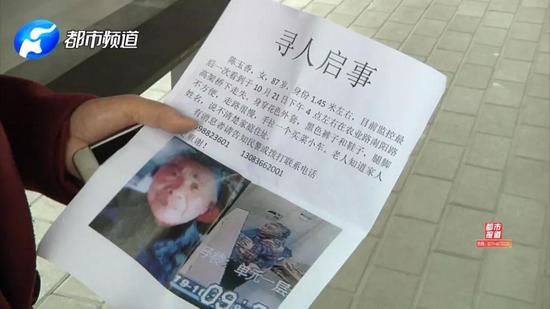 都市频道
寻人启事
陈玉香，女，87岁，身份1.45米左右，目前监控最
后一次看到于10月21日下午4点左右在农业路南阳路
高架桥下走失，身穿花色外套，黑色裤子和鞋子，腿脚
不方便，走路很慢，手拉一个买菜小车，老人知道家人
姓名，说不清楚家庭住址。
有消息者请告知民警或拨打联系电话
13083662001
都市
报道
单元一层